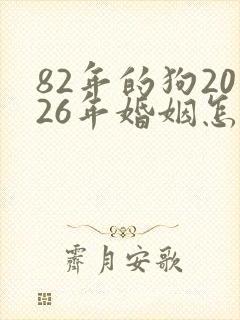 82年的狗20
26年婚姻怎
霁月安歌